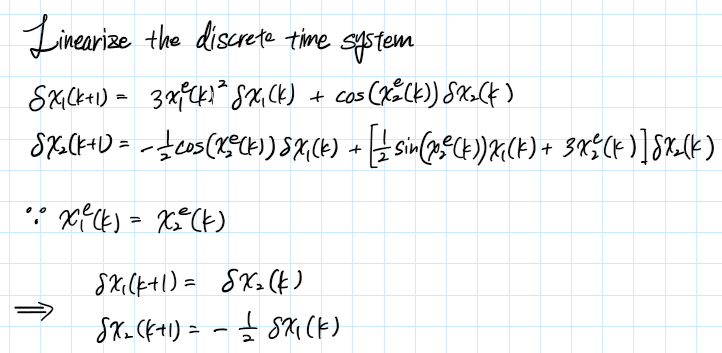 Linearize the discrete time system
δx₁(k+1) = 3x₁ᵉ(k)² δx₁(k) + cos(x₂ᵉ(k)) δx₂(k)
δx₂(k+1) = -½cos(x₂ᵉ(k)) δx₁(k) + [½ sin(x₂ᵉ(k))x₁(k) + 3x₂ᵉ(k)] δx₂(k)
∵ x₁ᵉ(k) = x₂ᵉ(k)
δx₁(k+1) = δx₂(k)
⇒
δx₂(k+1) = -½ δx₁(k)